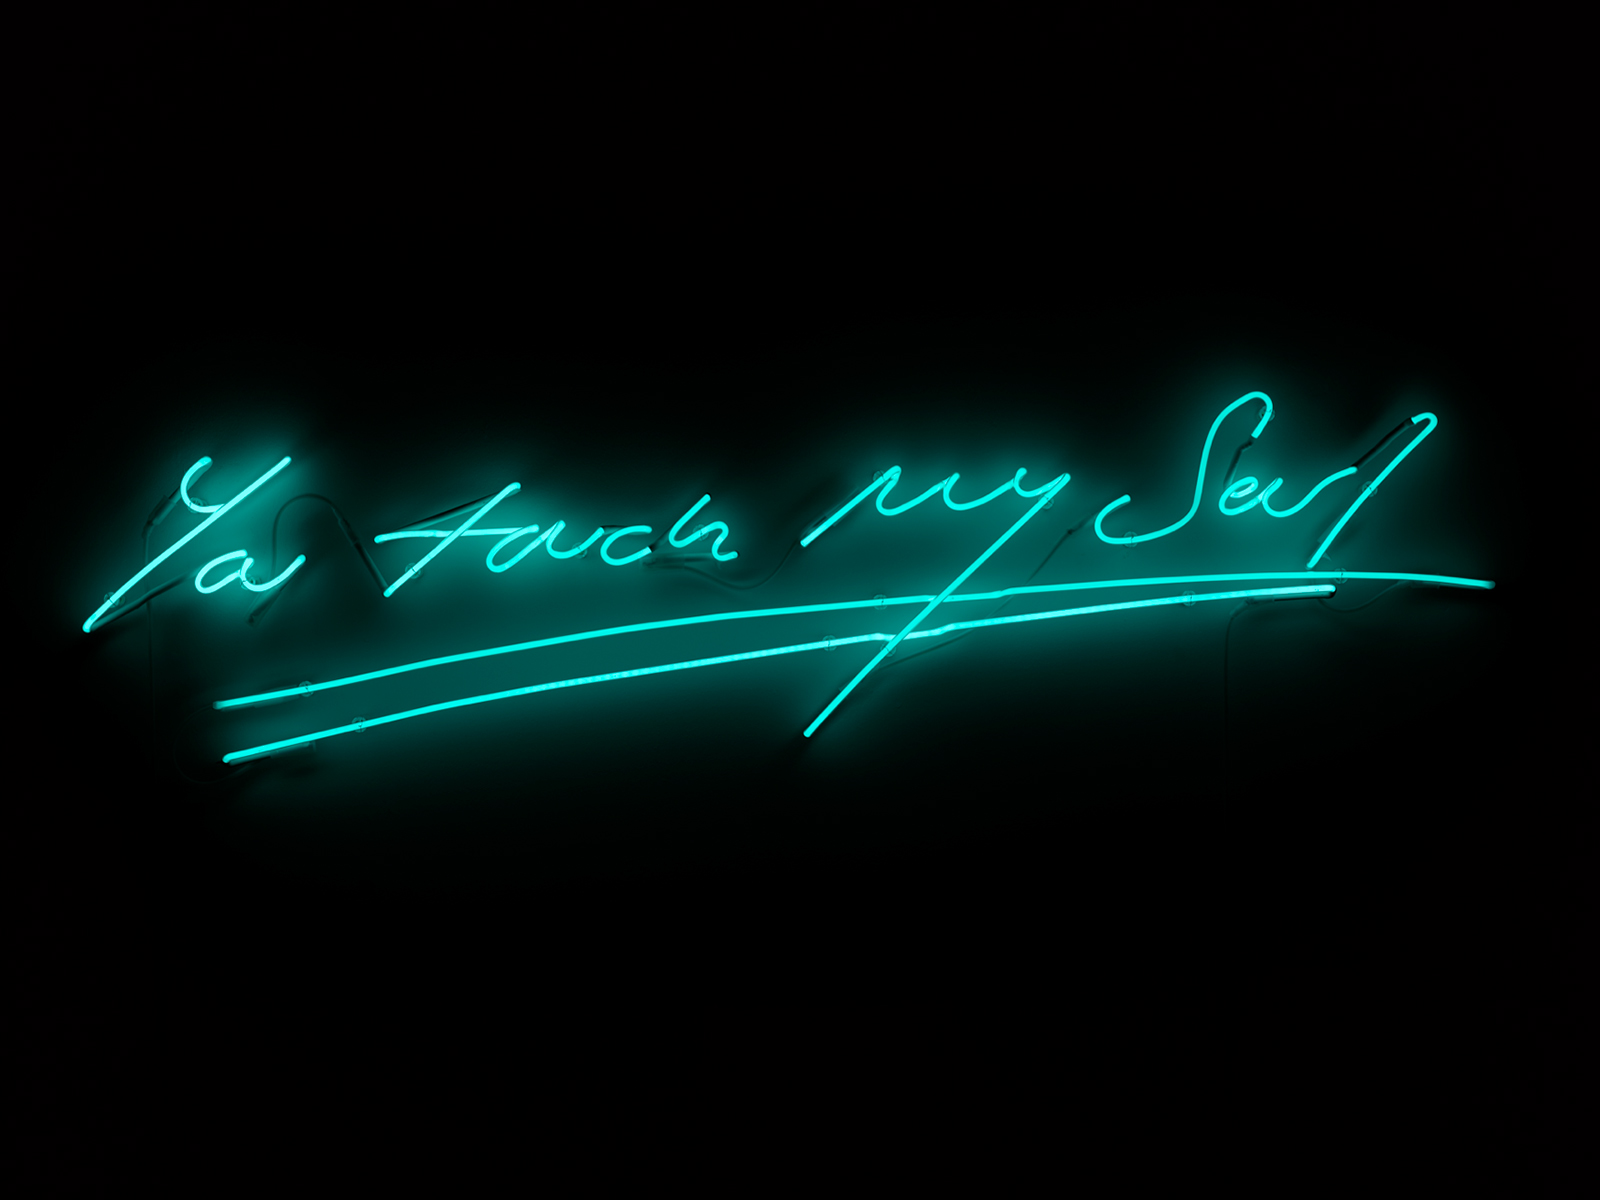 You touch my Soul